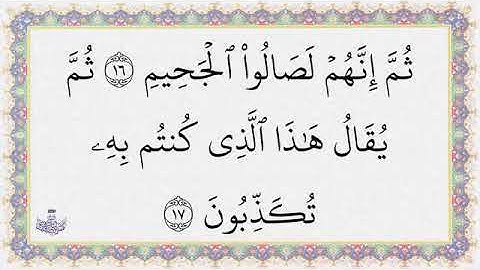 ثُمَّ إِنَّهُمۡ لَصَالُواْ ٱلۡجَحِيمِ ١٦ ثُمَّ
يُقَالُ هَٰذَا ٱلَّذِي كُنتُم بِهِۦ
تُكَذِّبُونَ ١٧